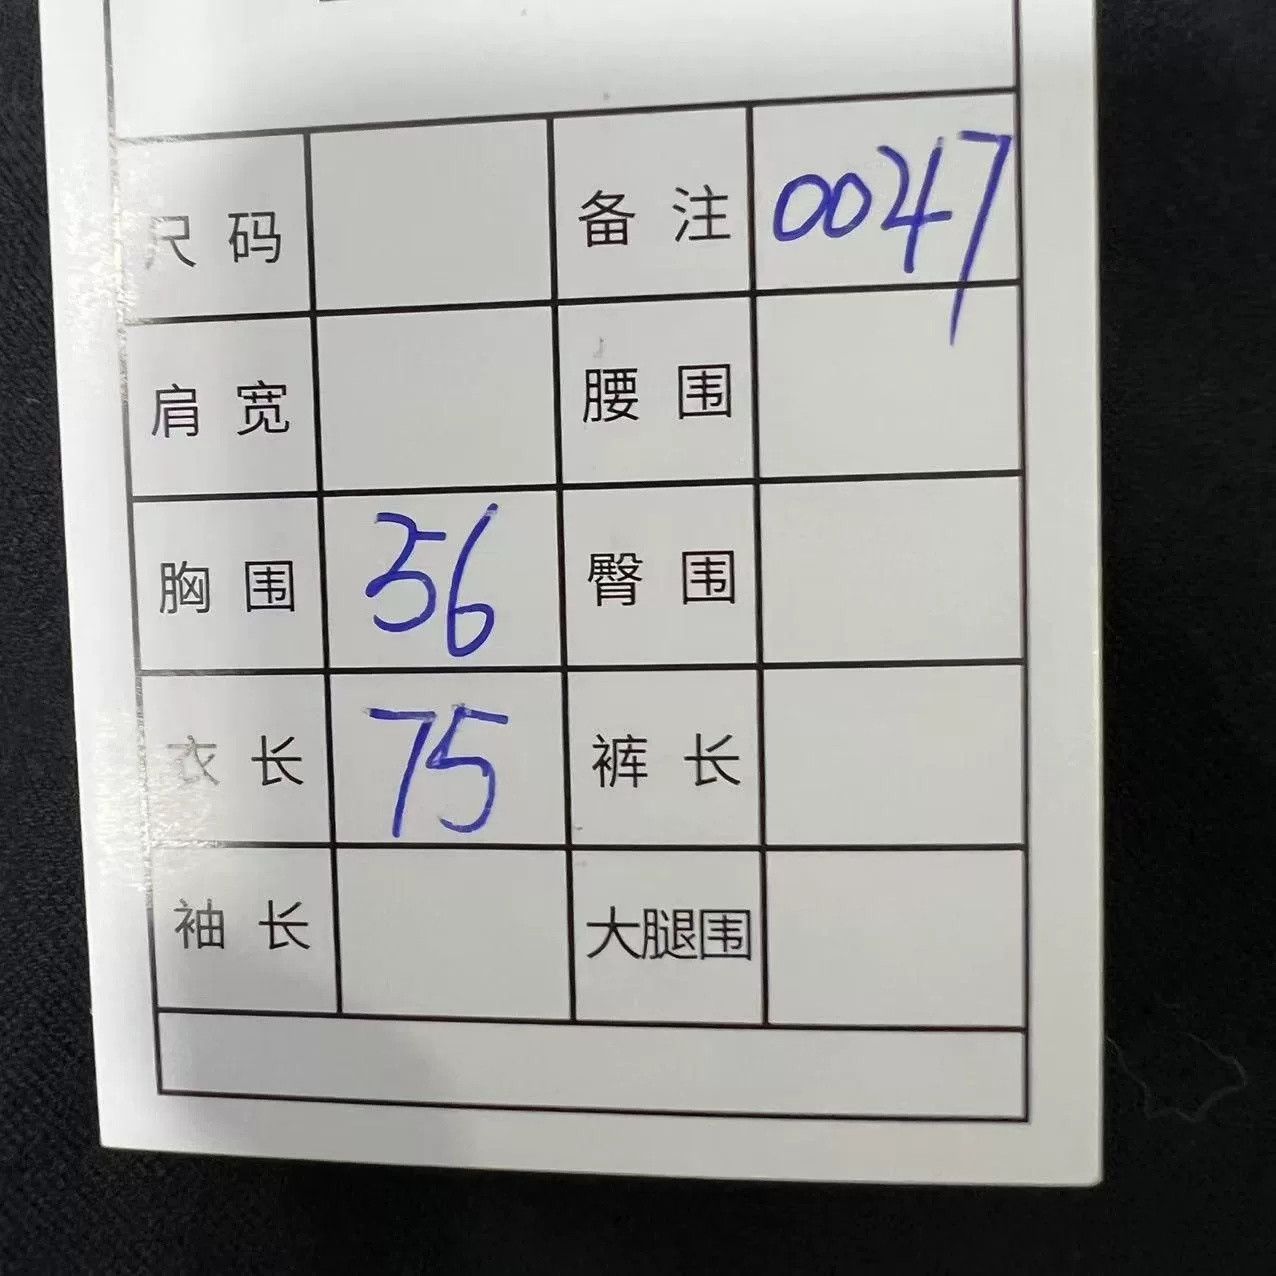 尺码 备注 0047
肩宽 腰围
胸围 56 臀围
衣长 75 裤长
袖长 大腿围